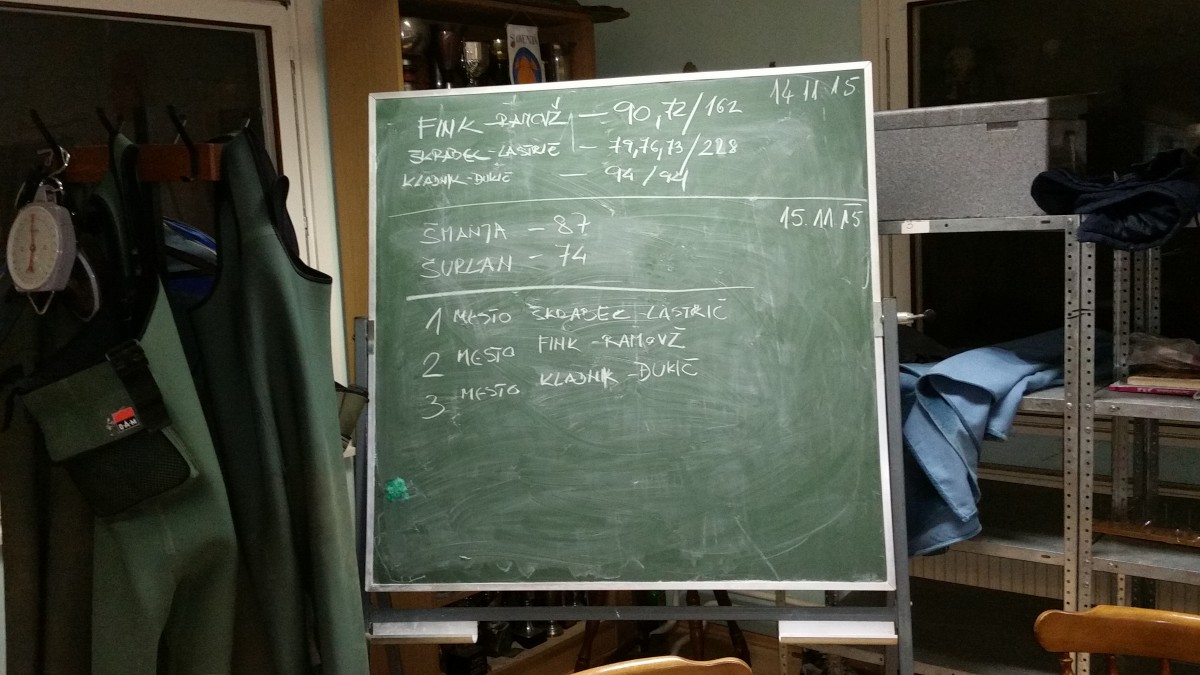 14.11.15
FINK-RAMOVŽ — 90,72/162
ŠKRABEC-LASTRIČ — 79,76,73/228
KLADNIK-ĐUKIČ — 94/94
15.11.15
ŠMANJA - 87
ŠURLAN - 74
1 MESTO ŠKRABEC-LASTRIČ
2 MESTO FINK-RAMOVŽ
3 MESTO KLADNIK-ĐUKIČ
DAM